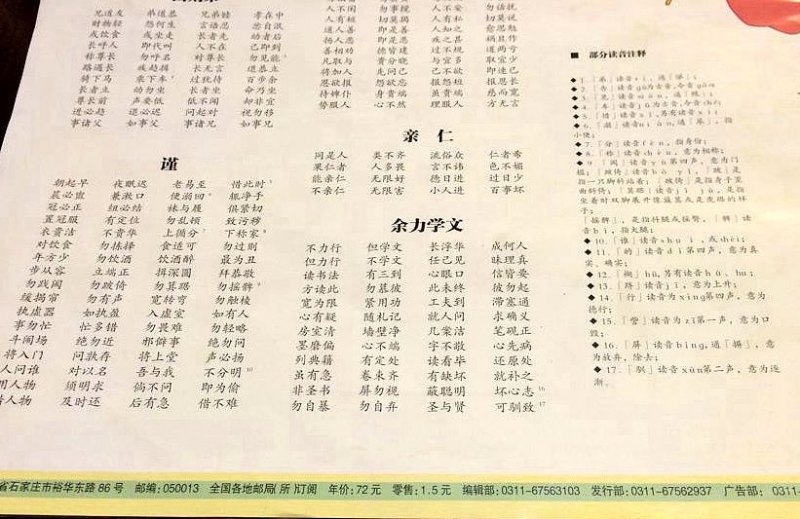 兄道友 弟道恭 兄弟睦 孝在中
财物轻 怨何生 言语忍 忿自泯
或饮食 或坐走 长者先 幼者后
长呼人 即代叫 人不在 己即到
称尊长 勿呼名 对尊长 勿见能
路遇长 疾趋揖 长无言 退恭立
骑下马 乘下车 过犹待 百步余
长者立 幼勿坐 长者坐 命乃坐
尊长前 声要低 低不闻 却非宜
进必趋 退必迟 问起对 视勿移
事诸父 如事父 事诸兄 如事兄
谨
朝起早 夜眠迟 老易至 惜此时
晨必盥 兼漱口 便溺回 辄净手
冠必正 纽必结 袜与履 俱紧切
置冠服 有定位 勿乱顿 致污秽
衣贵洁 不贵华 上循分 下称家
对饮食 勿拣择 食适可 勿过则
年方少 勿饮酒 饮酒醉 最为丑
步从容 立端正 揖深圆 拜恭敬
勿践阈 勿跛倚 勿箕踞 勿摇髀
缓揭帘 勿有声 宽转弯 勿触棱
执虚器 如执盈 入虚室 如有人
事勿忙 忙多错 勿畏难 勿轻略
斗闹场 绝勿近 邪僻事 绝勿问
将入门 问孰存 将上堂 声必扬
人问谁 对以名 吾与我 不分明10
用人物 须明求 倘不问 即为偷
借人物 及时还 后有急 借不难
人不闲 勿事搅 人不安 勿话扰
人有短 切莫揭 人有私 切莫说
道人善 即是善 人知之 愈思勉
扬人恶 即是恶 疾之甚 祸且作
善相劝 德皆建 过不规 道两亏
凡取与 贵分晓 与宜多 取宜少
将加人 先问己 己不欲 即速已
恩欲报 怨欲忘 报怨短 报恩长
待婢仆 身贵端 虽贵端 慈而宽
势服人 心不然 理服人 方无言
亲 仁
同是人 类不齐 流俗众 仁者希
果仁者 人多畏 言不讳 色不媚
能亲仁 无限好 德日进 过日少
不亲仁 无限害 小人进 百事坏
余力学文
不力行 但学文 长浮华 成何人
但力行 不学文 任己见 昧理真
读书法 有三到 心眼口 信皆要
方读此 勿慕彼 此未终 彼勿起
宽为限 紧用功 工夫到 滞塞通
心有疑 随札记 就人问 求确义
房室清 墙壁净 几案洁 笔砚正
墨磨偏 心不端 字不敬 心先病
列典籍 有定处 读看毕 还原处
虽有急 卷束齐 有缺坏 就补之
非圣书 屏勿视 蔽聪明 坏心志16
勿自暴 勿自弃 圣与贤 可驯致17
■ 部分读音注释
子;
「摇髀」,是指抖腿或摇臀,「髀」读
音bì,指大腿;
◆10.「谁」读音shuí,或shéi;
◆11.「的」读音dì第四声,意为真
实、确实;
◆13.「跻」读音jī,意为上升;
◆14.「行」读音为xìng第四声,意为
德行;
◆15.「訾」读音为zǐ第一声,意为口
毁;
◆16.「屏」读音bǐng,通「摒」,意
为放弃,除去;
◆17.「驯」读音xún第二声,意为逐
渐。
省石家庄市裕华东路86号 邮编:050013 全国各地邮局(所)订阅 年价:72元 零售:1.5元 编辑部:0311-67563103 发行部:0311-67562937 广告部:0311-